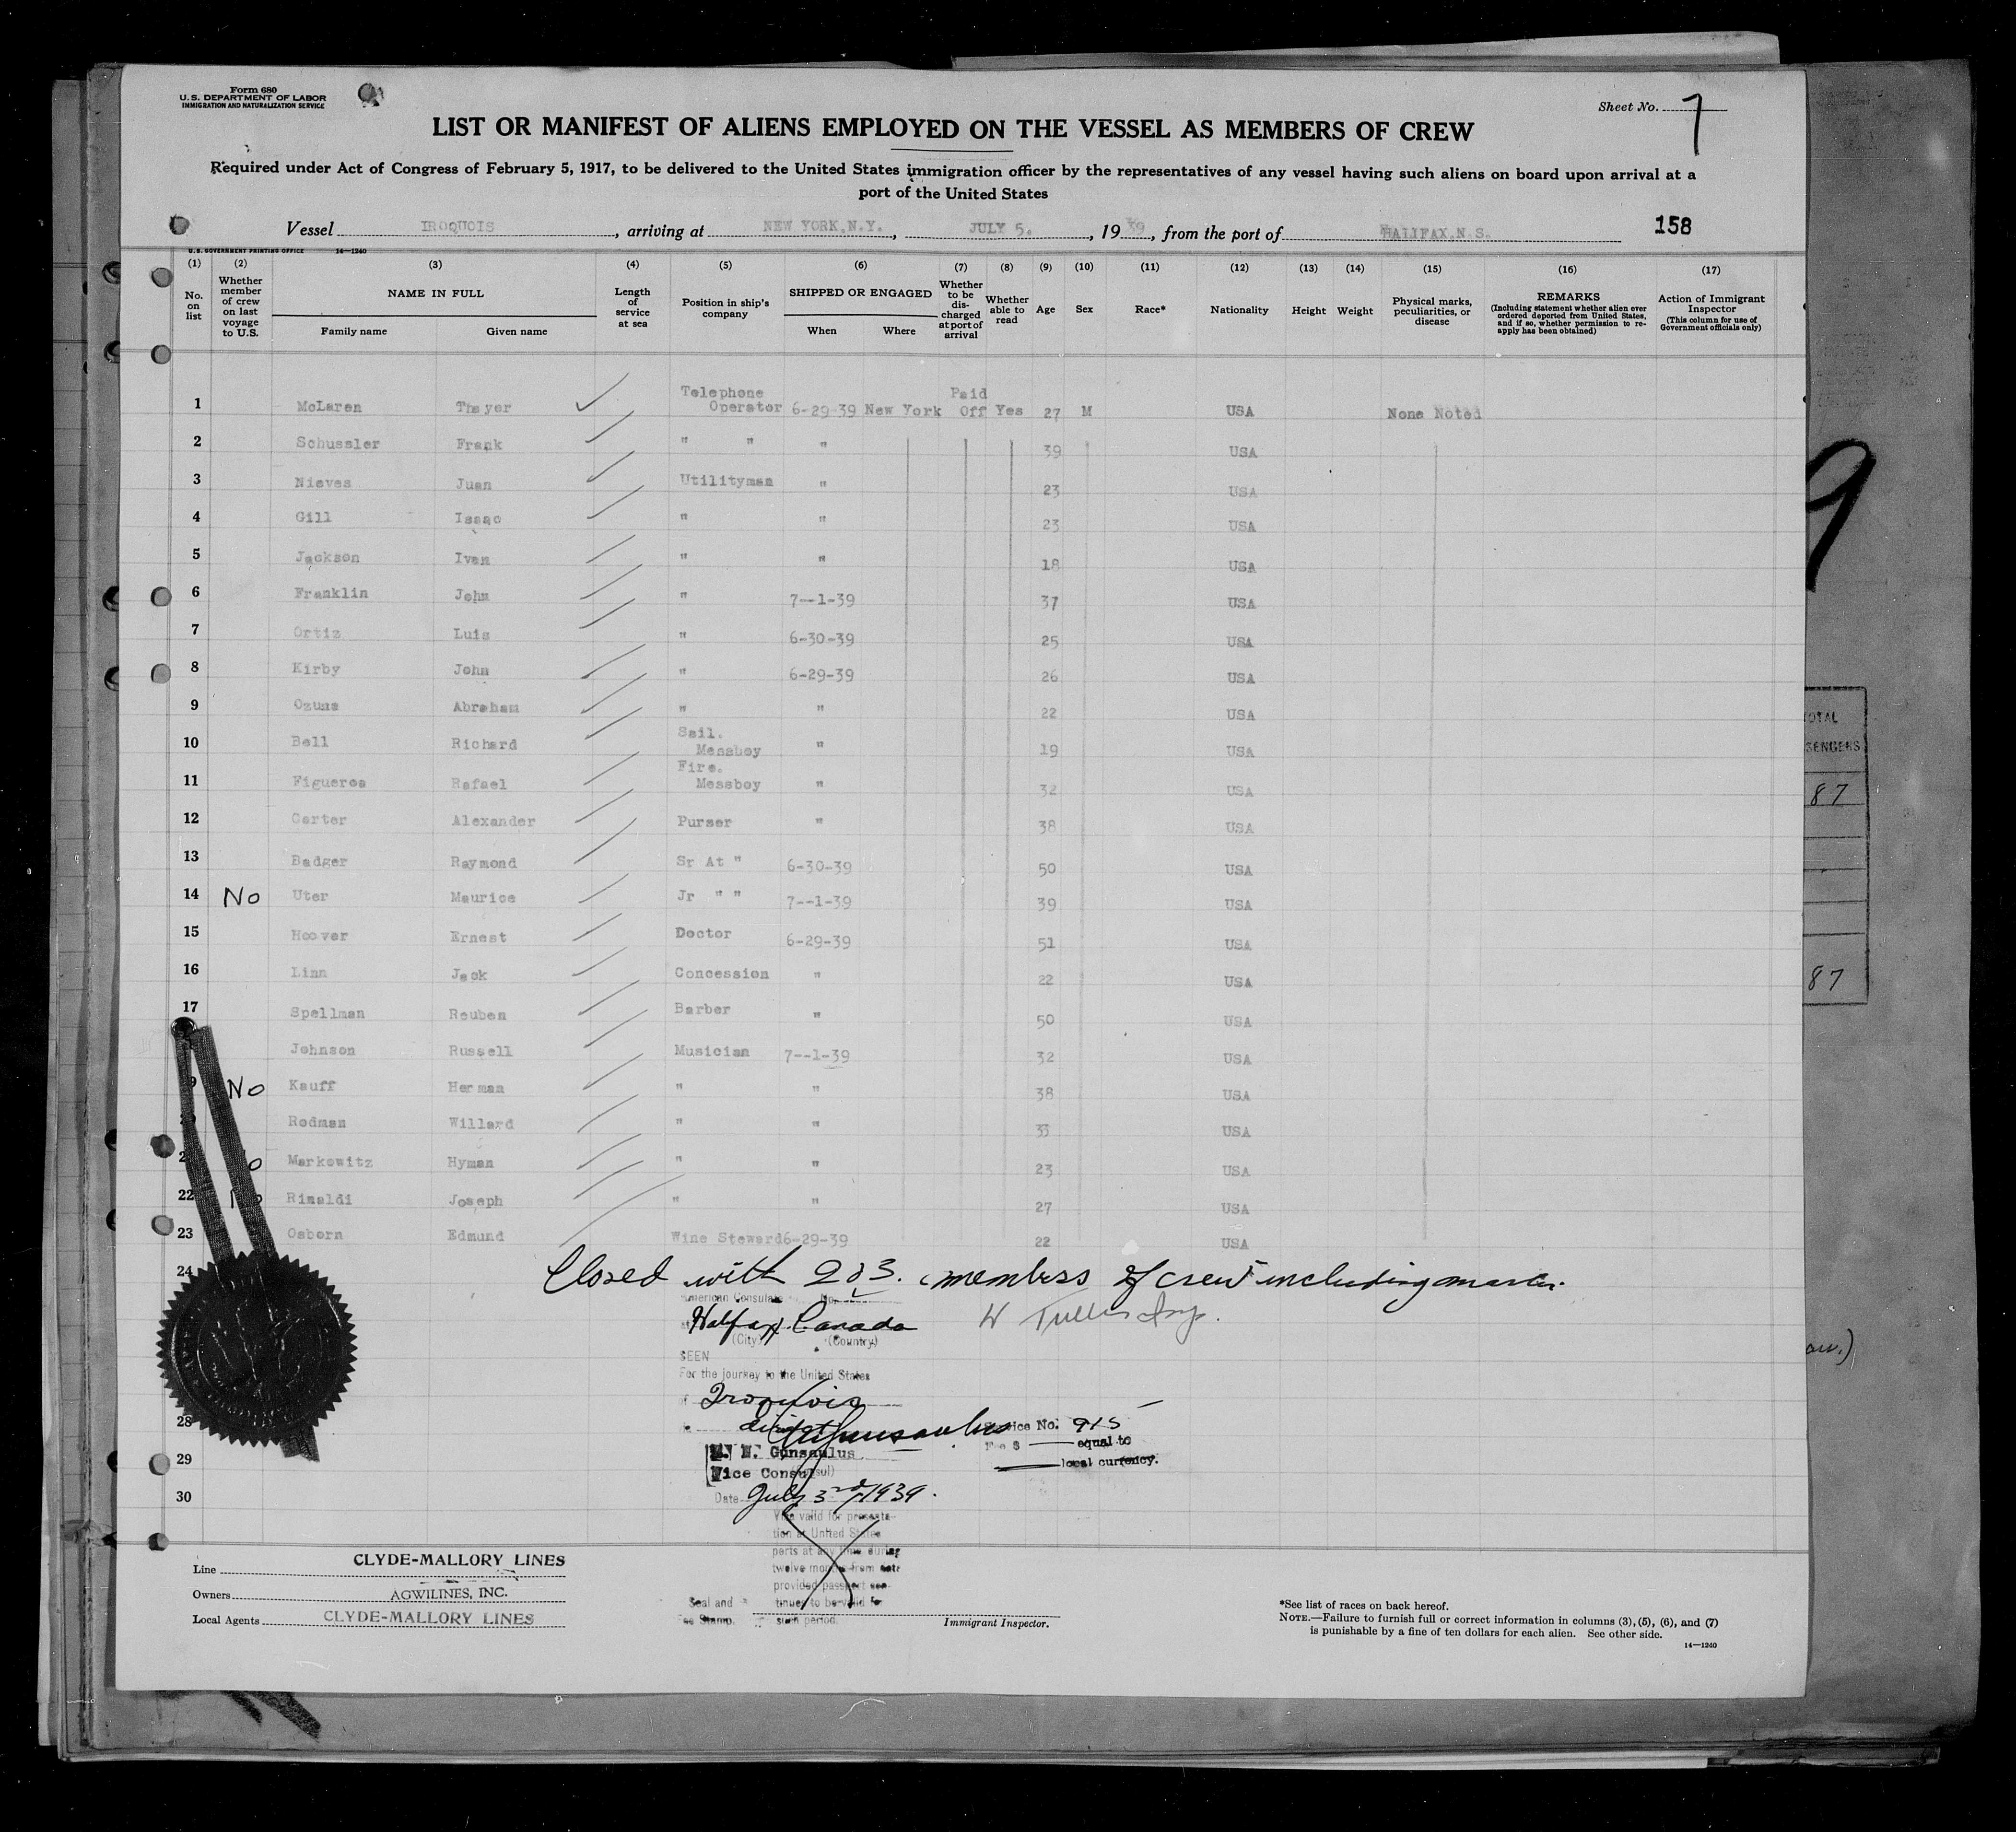 Form 680
U.S. DEPARTMENT OF LABOR
IMMIGRATION AND NATURALIZATION SERVICE
Sheet No. 7
LIST OR MANIFEST OF ALIENS EMPLOYED ON THE VESSEL AS MEMBERS OF CREW
Required under Act of Congress of February 5, 1917, to be delivered to the United States immigration officer by the representatives of any vessel having such aliens on board upon arrival at a
port of the United States
Vessel IROQUOIS, arriving at NEW YORK,N.Y., JULY 5., 1939, from the port of HALIFAX,N.S. 158
U.S. GOVERNMENT PRINTING OFFICE 14—1240
(1) (2) (3) (4) (5) (6) (7) (8) (9) (10) (11) (12) (13) (14) (15) (16) (17)
No. on list
Whether member of crew on last voyage to U.S.
NAME IN FULL
Family name Given name
Length of service at sea
Position in ship's company
SHIPPED OR ENGAGED
When Where
Whether to be discharged at port of arrival
Whether able to read
Age Sex Race* Nationality Height Weight
Physical marks, peculiarities, or disease
REMARKS
(Including statement whether alien ever ordered deported from United States, and if so, whether permission to re-apply has been obtained)
Action of Immigrant Inspector
(This column for use of Government officials only)
1 McLaren Thayer Telephone Operator 6-29-39 New York Paid Off Yes 27 M USA None Noted
2 Schussler Frank " " " 39 USA
3 Nieves Juan Utilityman " 23 USA
4 Gill Isaac " " 23 USA
5 Jackson Ivan " " 18 USA
6 Franklin John " 7--1-39 37 USA
7 Ortiz Luis " 6-30-39 25 USA
8 Kirby John " 6-29-39 26 USA
9 Ozuna Abraham " " 22 USA
10 Bell Richard Sail. Messboy " 19 USA
11 Figueroa Rafael Fire. Messboy " 32 USA
12 Carter Alexander Purser " 38 USA
13 Badger Raymond Sr At " 6-30-39 50 USA
14 No Uter Maurice Jr " " 7--1-39 39 USA
15 Hoover Ernest Doctor 6-29-39 51 USA
16 Linn Jack Concession " 22 USA
17 Spellman Reuben Barber " 50 USA
Johnson Russell Musician 7--1-39 32 USA
9 No Kauff Herman " " 38 USA
Rodman Willard " " 33 USA
2 Markowitz Hyman " " 23 USA
22 Rinaldi Joseph " " 27 USA
23 Osborn Edmund Wine Steward 6-29-39 22 USA
24
Closed with 203. members of crew including master.
American Consulate No.
Halifax Canada
(City) (Country)
SEEN
For the journey to the United States
Iroquois
28
Service No. 915
Fee $ equal to
local currency.
W. Gunsaulus
Vice Consul
29
Date July 3rd, 1939.
30
Visa valid for presenta-
tion at United States
ports at any time during
twelve months from date
provided passport con-
tinues to be valid for
such period.
Seal and
Fee Stamp.
Line CLYDE-MALLORY LINES
Owners AGWILINES, INC.
Local Agents CLYDE-MALLORY LINES
Immigrant Inspector.
*See list of races on back hereof.
NOTE.—Failure to furnish full or correct information in columns (3), (5), (6), and (7)
is punishable by a fine of ten dollars for each alien. See other side.
14—1240
9
87
87